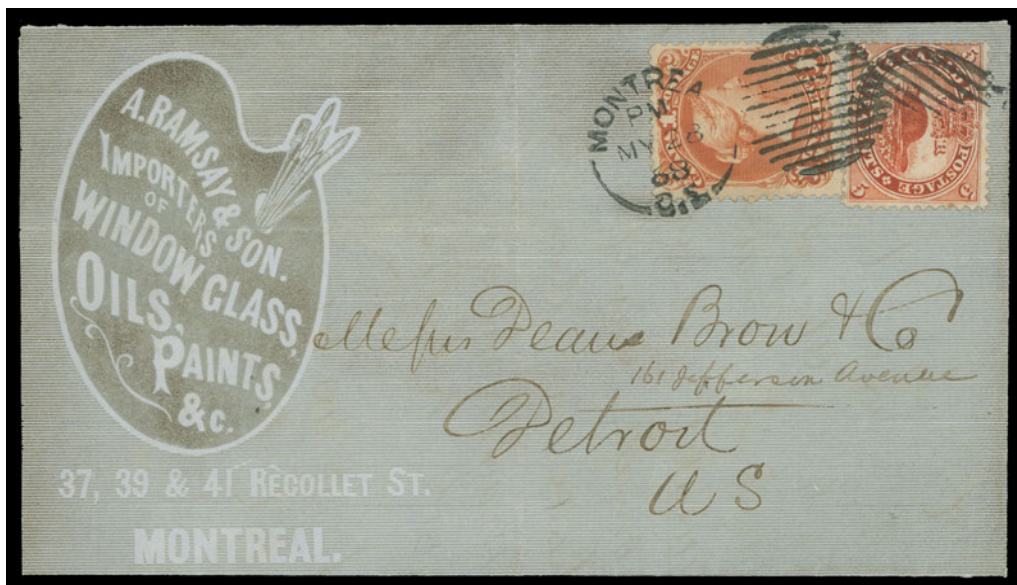 A. RAMSAY & SON.
IMPORTERS
OF
WINDOW GLASS,
OILS,
PAINTS,
&c.
37, 39 & 41 RECOLLET ST.
MONTREAL.
MONTREA
PM
MY 28
69
POSTAGE
5 5
Messrs Deane Brow & Co
161 Jefferson Avenue
Detroit
U S